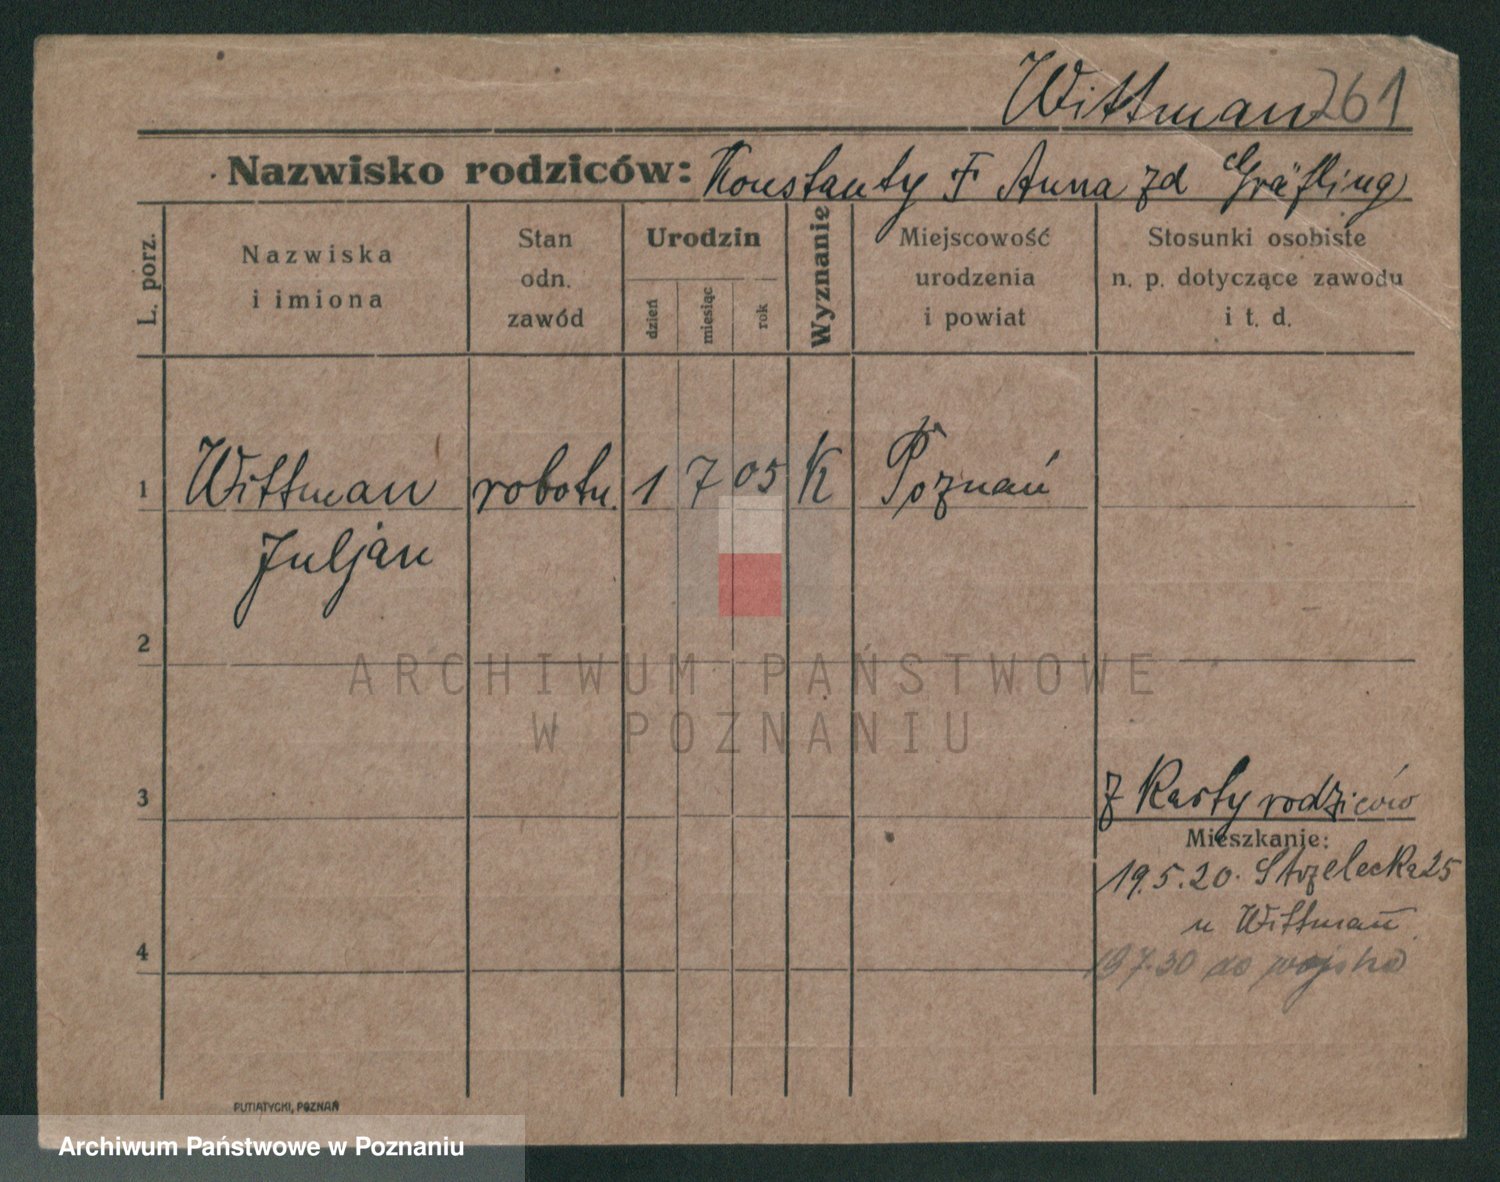 Wittman 261
Nazwisko rodziców: Konstanty F Anna zd Gräfling
L. porz.
Nazwiska
i imiona
Stan
odn.
zawód
Urodzin
dzień
miesiąc
rok
Wyznanie
Miejscowość
urodzenia
i powiat
Stosunki osobiste
n. p. dotyczące zawodu
i t. d.
1 Wittman robotn. 1 7 05 K Poznań
Juljan
2
ARCHIWUM PAŃSTWOWE
W POZNANIU
3
z Karty rodziców
Mieszkanie:
19.5.20. Strzelecka 25
u Wittman
4
19 7.30 do wojska
PUTIATYCKI, POZNAŃ
Archiwum Państwowe w Poznaniu